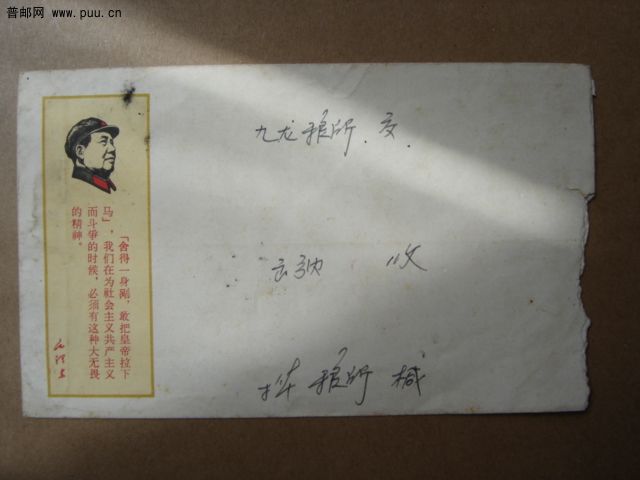 普邮网 www.puu.cn
「舍得一身剐，敢把皇帝拉下
马」，我们在为社会主义共产主义
而斗争的时候，必须有这种大无畏
的精神。
毛泽东
九龙粮所 交
收
粮所 缄